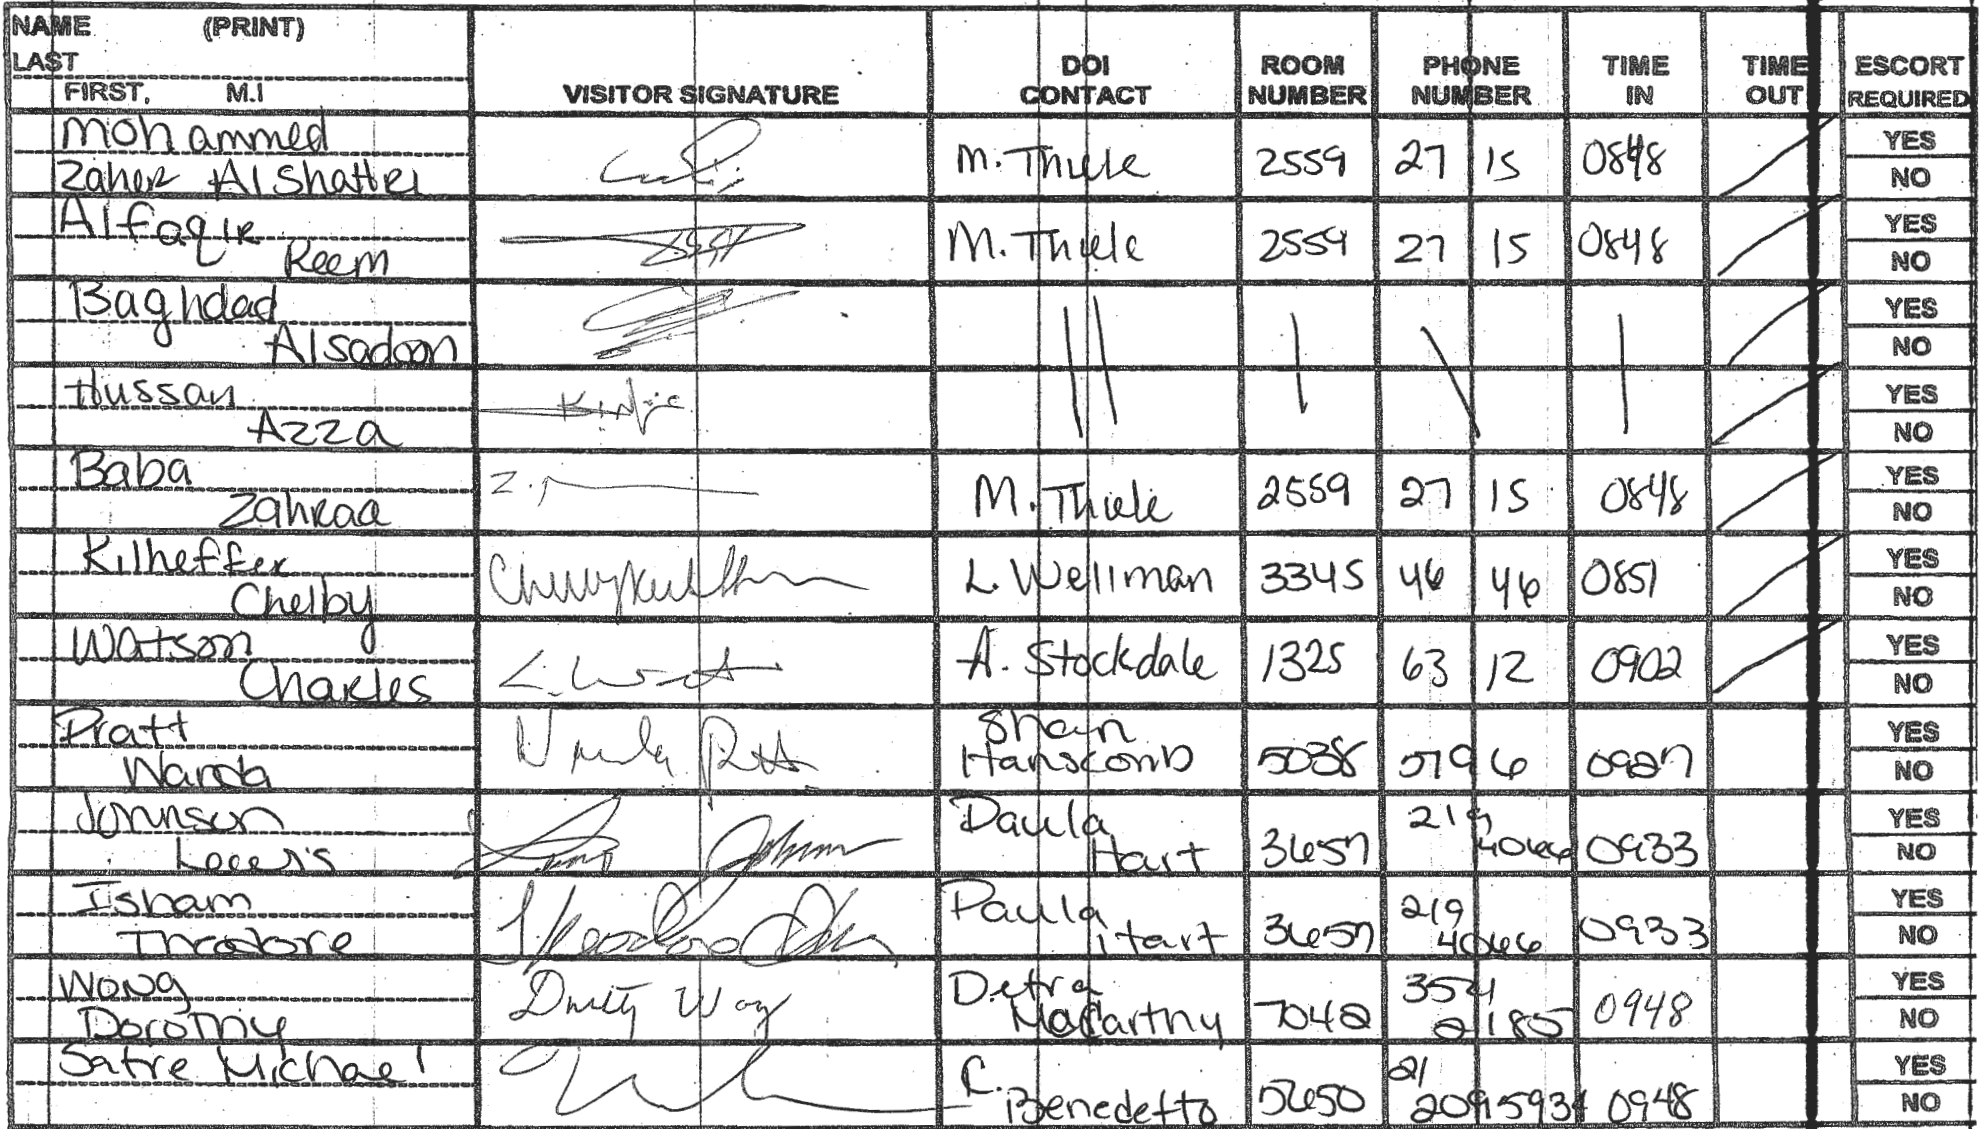 NAME (PRINT)
LAST
FIRST, M.I
VISITOR SIGNATURE
DOI CONTACT
ROOM NUMBER
PHONE NUMBER
TIME IN
TIME OUT
ESCORT REQUIRED
Mohammed
Zaher AlShattri M. Thiele 2559 27 15 0848 YES NO
Alfaqir
Reem M. Thiele 2559 27 15 0848 YES NO
Baghdad
Alsadoon YES NO
Hussan
Azza YES NO
Baba
Zahraa Z. M. Thiele 2559 27 15 0848 YES NO
Kilheffer
Chelby L. Wellman 3345 46 46 0851 YES NO
Watson
Charles A. Stockdale 1325 63 12 0902 YES NO
Pratt
Wanda Shain Hanscomb 5038 5796 0927 YES NO
Johnson
Lewis Johnson Paula Hart 3657 219 4066 0933 YES NO
Isham
Theodore Theodore Isham Paula Hart 3657 219 4066 0933 YES NO
Wong
Dorothy Wong Detra McCarthy 7042 354 2185 0948 YES NO
Satre Michael C. Benedetto 5650 21 0948 YES NO